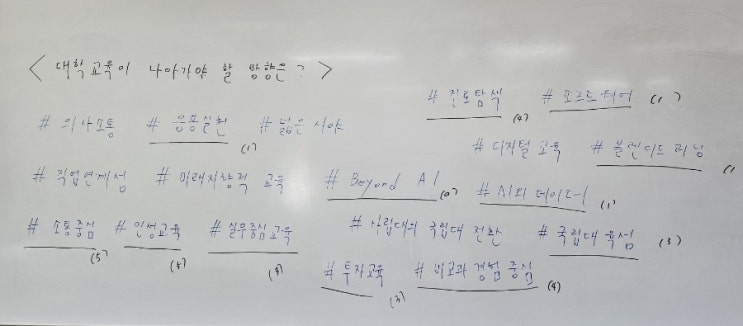 < 대학교육이 나아가야 할 방향은? >
# 진로탐색 # 포르드 (1)
# 의사소통 # 응용실천 (1) # 넓은 시야
# 디지털 교육 # 블렌디드 러닝 (1
# 직업연계성 # 미래지향적 교육 # Beyond AI # AI와 데이터 (1)
# 소통중심 (5) # 인성교육 # 실무중심교육 # 사립대의 국립대 전환 # 국립대 육성 (3)
# 투자교육 (3) # 비교과 경험 중심 (4)